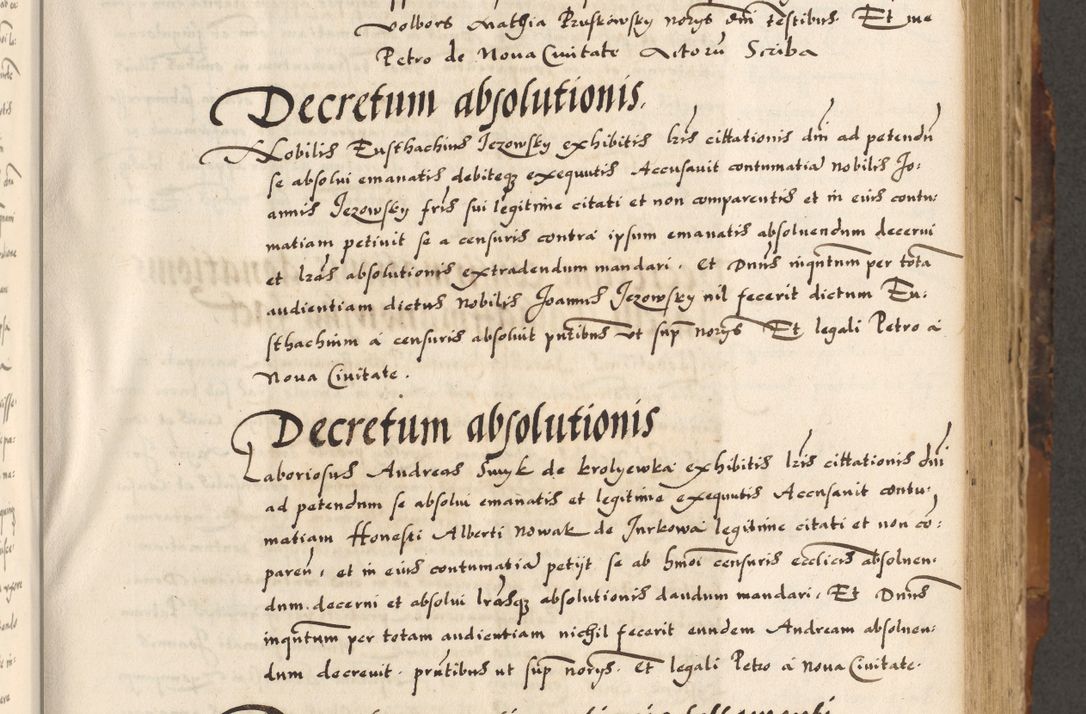 Volbors Mathia Pruskowsky norÿs dm testibus Et me
Petro de Nova Civitate Actorū Scriba
Decretum absolutionis.
Nobilis Eusthachius Jezowsky exhibitis lrīs cittationis dni ad petendū
se absolvi emanatis debiteqȝ exequutis Accusavit contumatiā Nobilis Jo:
annis Jezowsky fris sui legitime citati et non comparentis et in eius contu:
matiam petivit se a censuris contra ipsum emanatis absolvendum decerni
et lrās absolutionis extradendum mandari. Et Dnūs inqntum per totā
audientiam dictus Nobilis Joannes Jezowsky nil fecerit dictum Eu:
sthachium a censuris absolvit pntibus ut sup norÿs Et legali Petro a
Nova Civitate.
Decretum absolutionis
Laboriosus Andreas Smyk de krolyewka exhibitis lrīs cittationis dni
ad petendum se absolvi emanatis et legitime exequutis Accusavit contu:
matiam Honesti Alberti Nowak de Jurkowa legitime citati et non cō:
paren, et in eius contumatiā petÿt se ab hmōi censuris ecclīcis absolven:
dum decerni et absolvi lrāsqȝ absolutionis dandum mandari. Et Dnūs
inqntum per totam audientiam nichil fecerit eundem Andream absolven:
dum decrevit. pntibus ut sup norÿs. Et legali Petro a Nova Civitate.